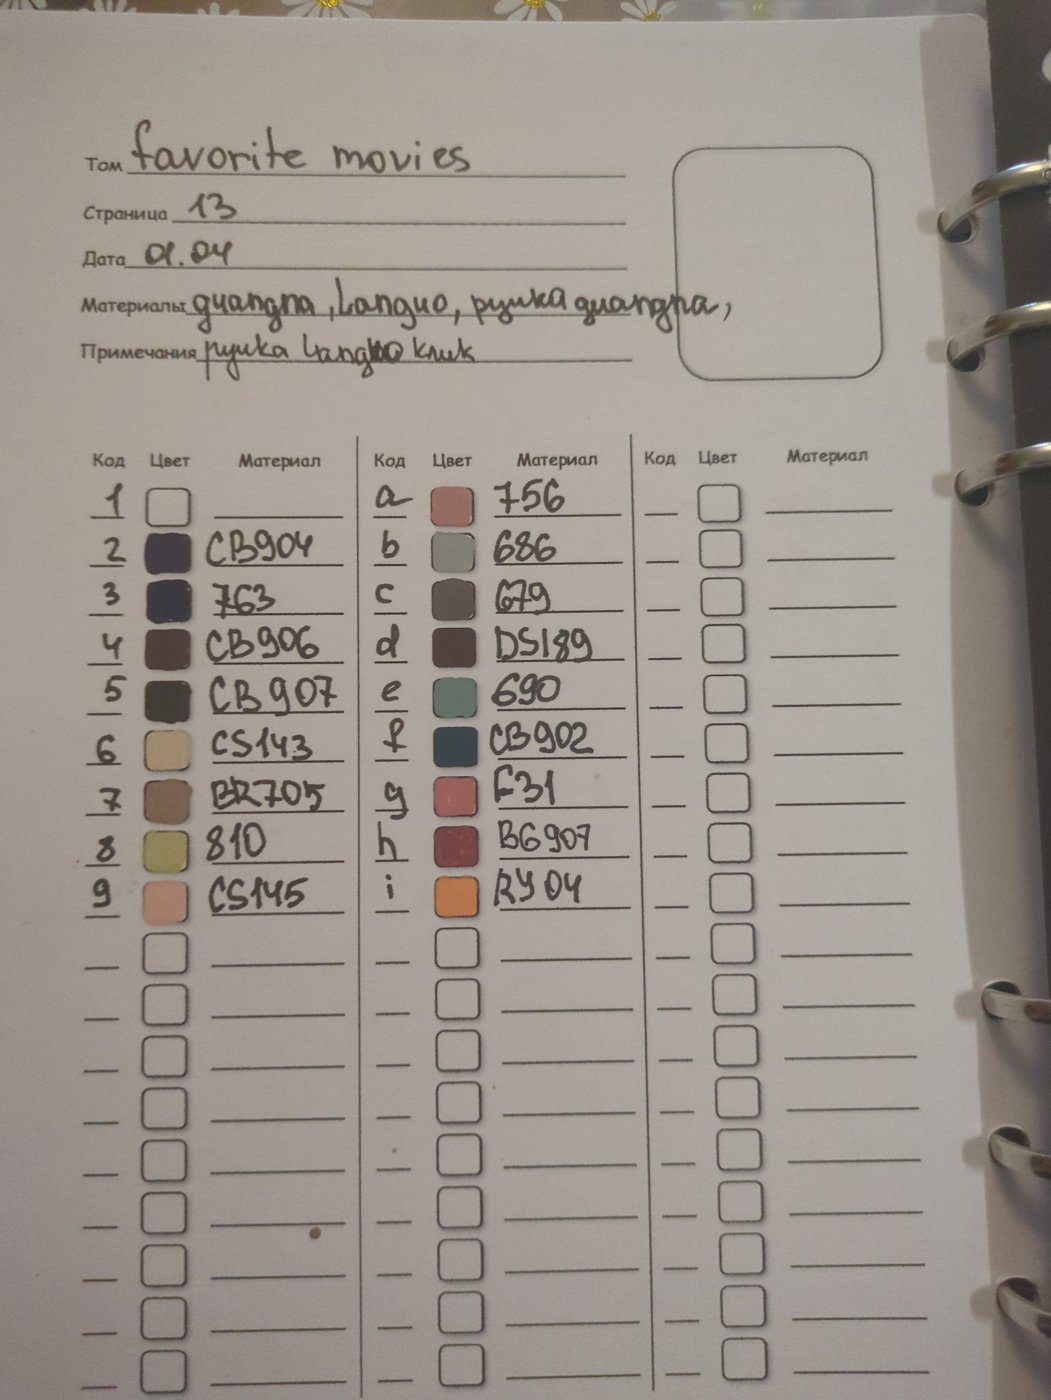 Том favorite movies
Страница 13
Дата 01.04
Материалы guangna, Languo, ручка guangna,
Примечания ручка Languo клик
Код Цвет Материал Код Цвет Материал Код Цвет Материал
1 a 756
2 CB904 b 686
3 763 c 679
4 CB906 d DS189
5 CB907 e 690
6 CS143 f CB902
7 BR705 g F31
8 810 h BG907
9 CS145 i RY04